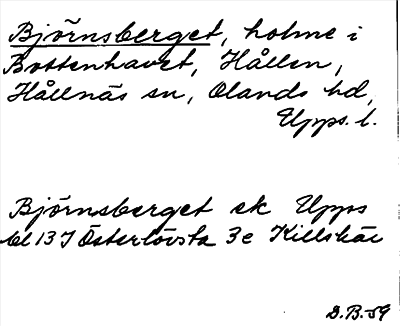 Björnsberget, holme i
Bottenhavet, Hållen,
Hållnäs sn, Olands hd,
Upps. l.
Björnsberget ek Upps
bl 13 I Österlövsta 3e Killskär
D.B.-59